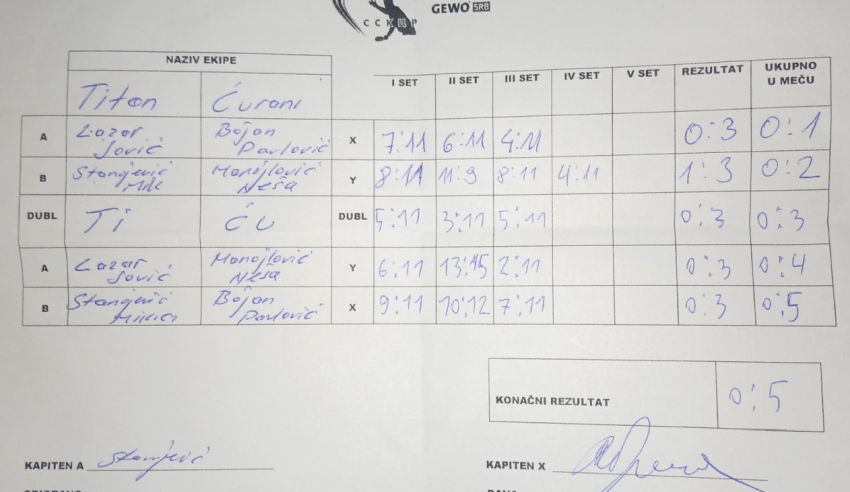 ССКЦР GEWO SRB
NAZIV EKIPE
Titan Ćurani I SET II SET III SET IV SET V SET REZULTAT UKUPNO U MEČU
A Lazar Jović Bojan Pavlović X 7:11 6:11 4:11 0:3 0:1
B Stanojević Manojlović Neša Y 8:11 11:9 8:11 4:11 1:3 0:2
DUBL Ti Ću DUBL 5:11 3:11 5:11 0:3 0:3
A Lazar Jović Manojlović Neša Y 6:11 13:15 2:11 0:3 0:4
B Stanojević Bojan Pavlović X 9:11 10:12 7:11 0:3 0:5
KONAČNI REZULTAT 0:5
KAPITEN A Stanojević KAPITEN X